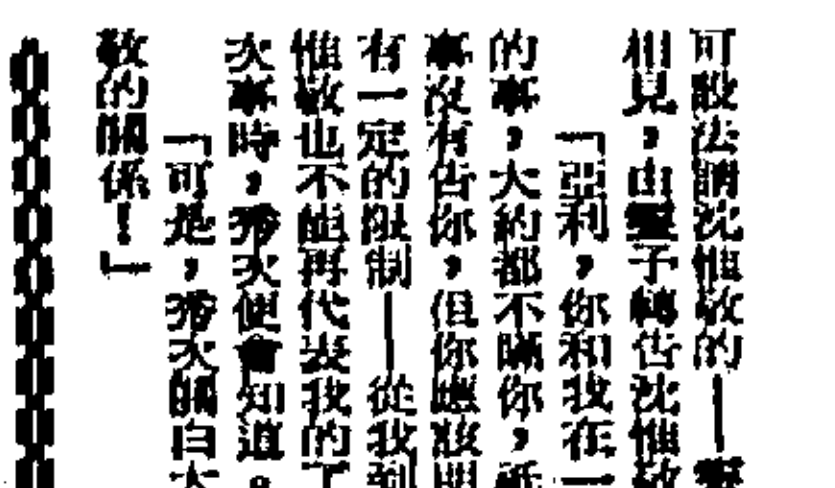 可設法請沈惟敬的——靈
相見，由靈子轉告沈惟敬
「亞利，你和我在一
的事，大約都不瞞你，祇
事沒有告你，但你應該明
有一定的限制——從我到
惟敬也不能再代表我的了
次事時，秀次便會知道。
「可是，秀次關白大
敬的關係！」